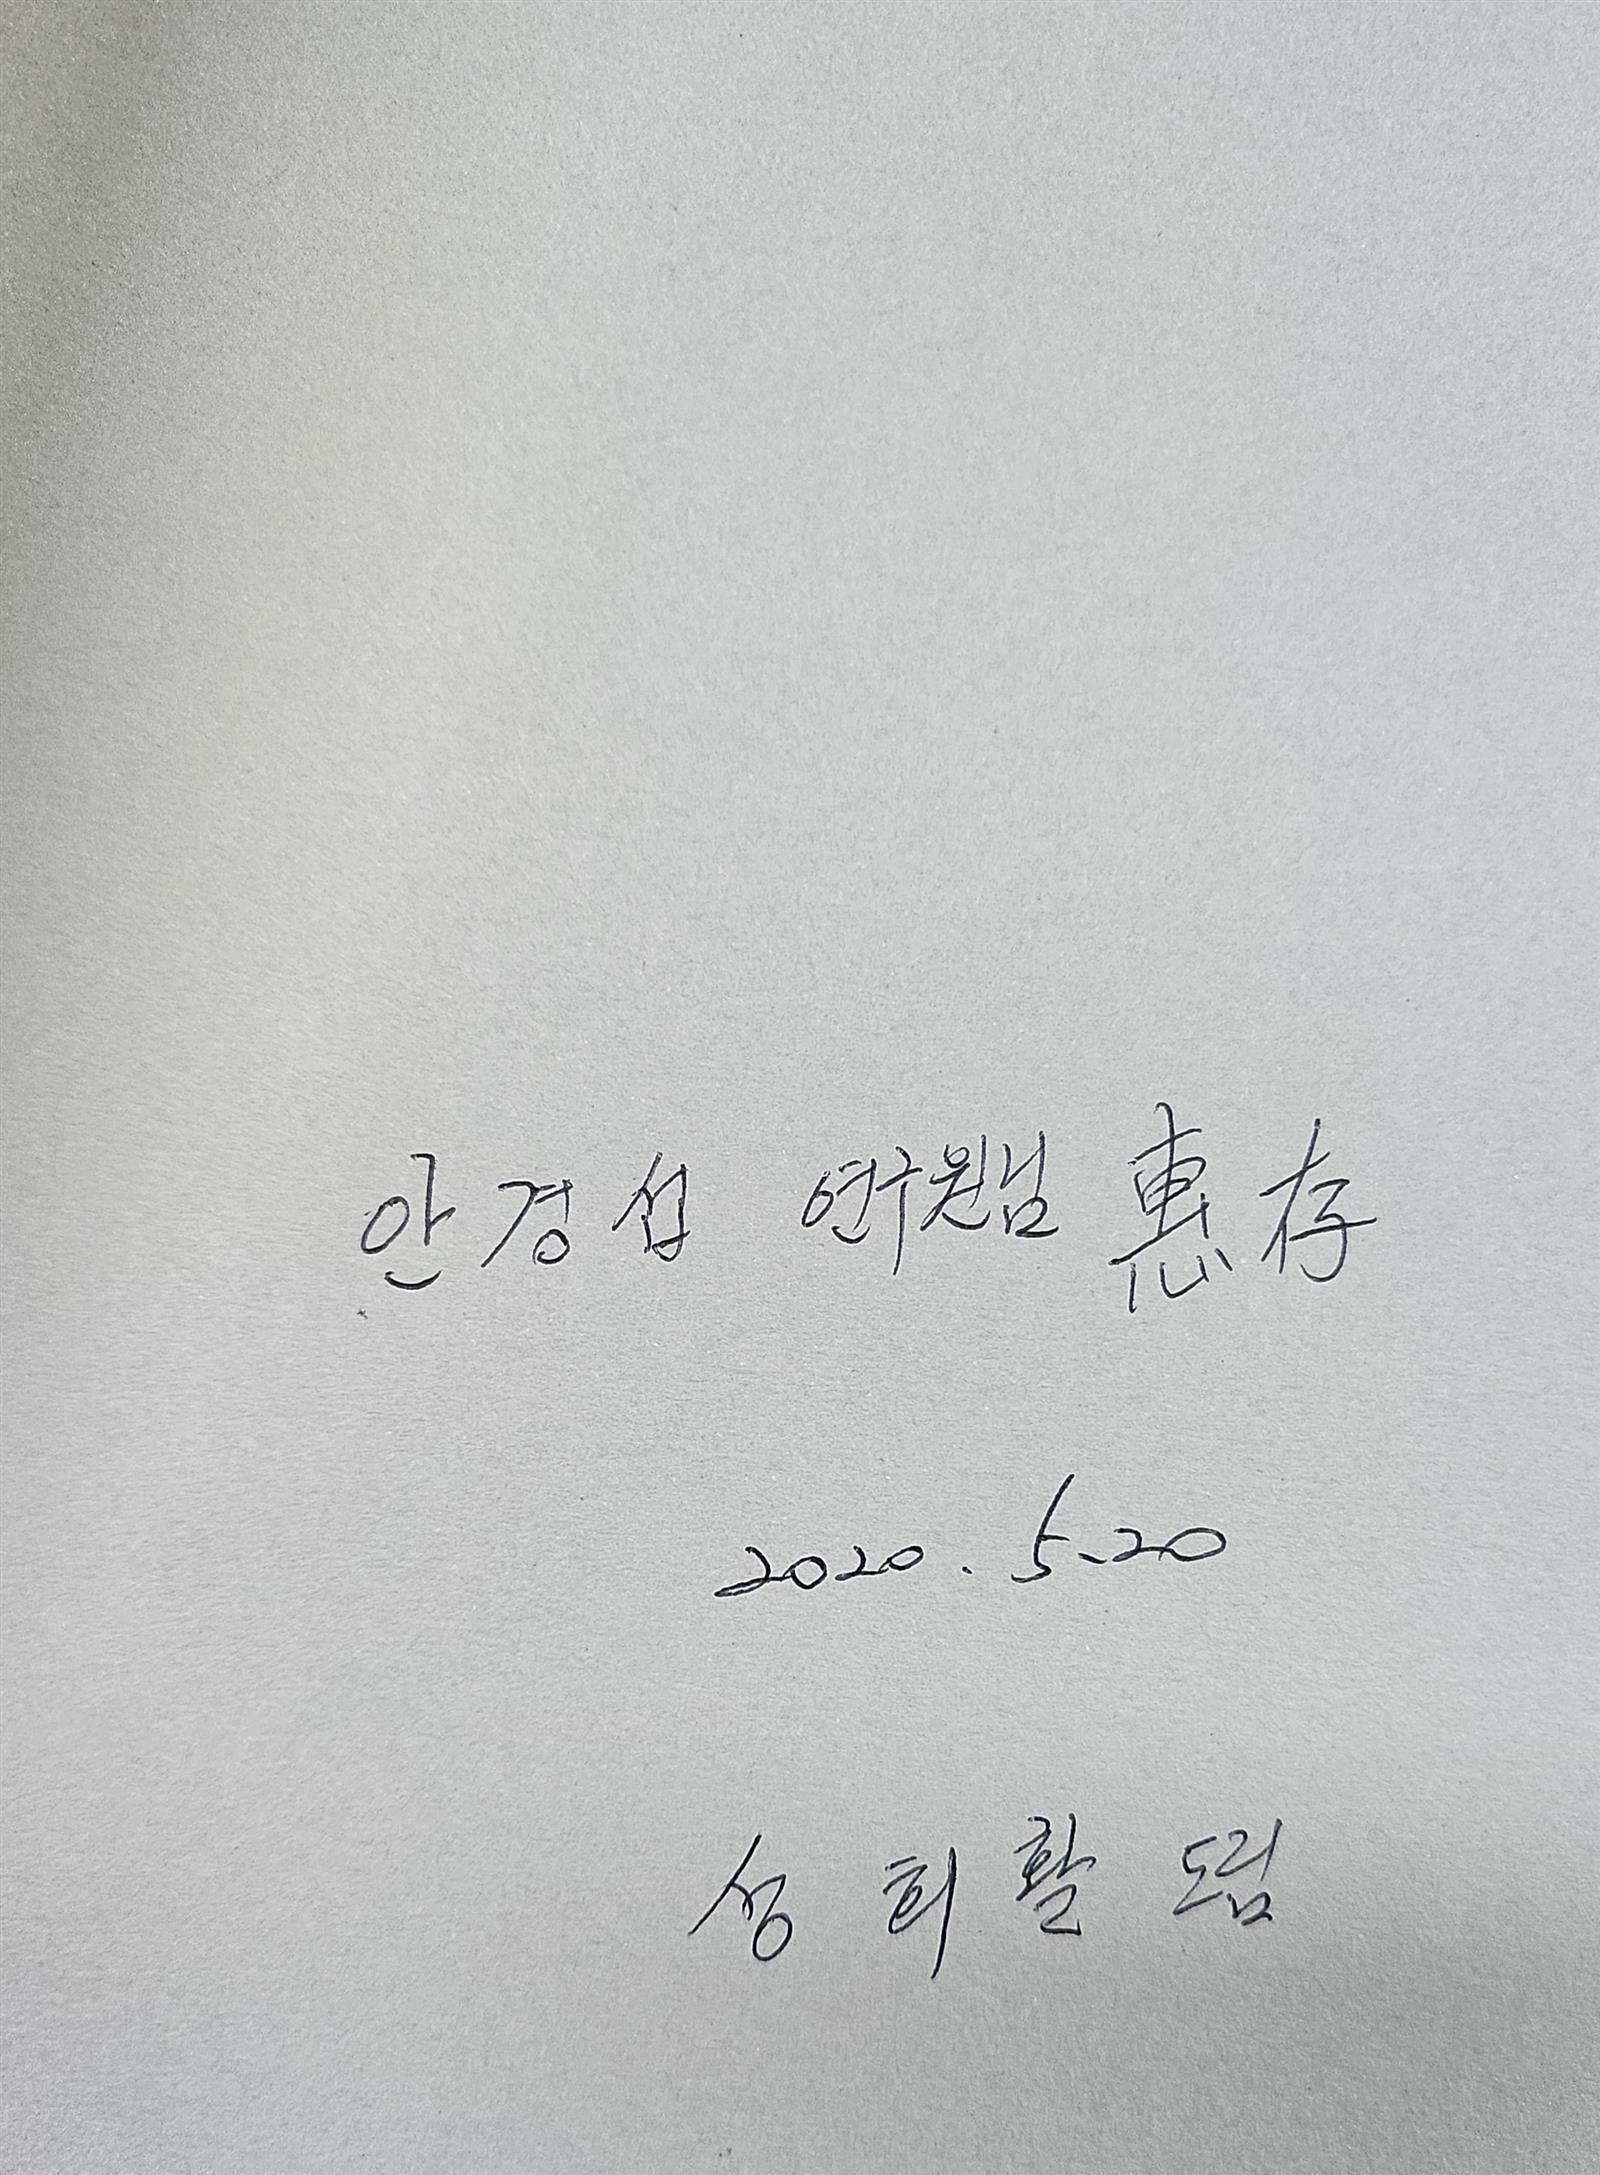 안경섭 연구원님 惠存
2020. 5. 20
성희활 드림